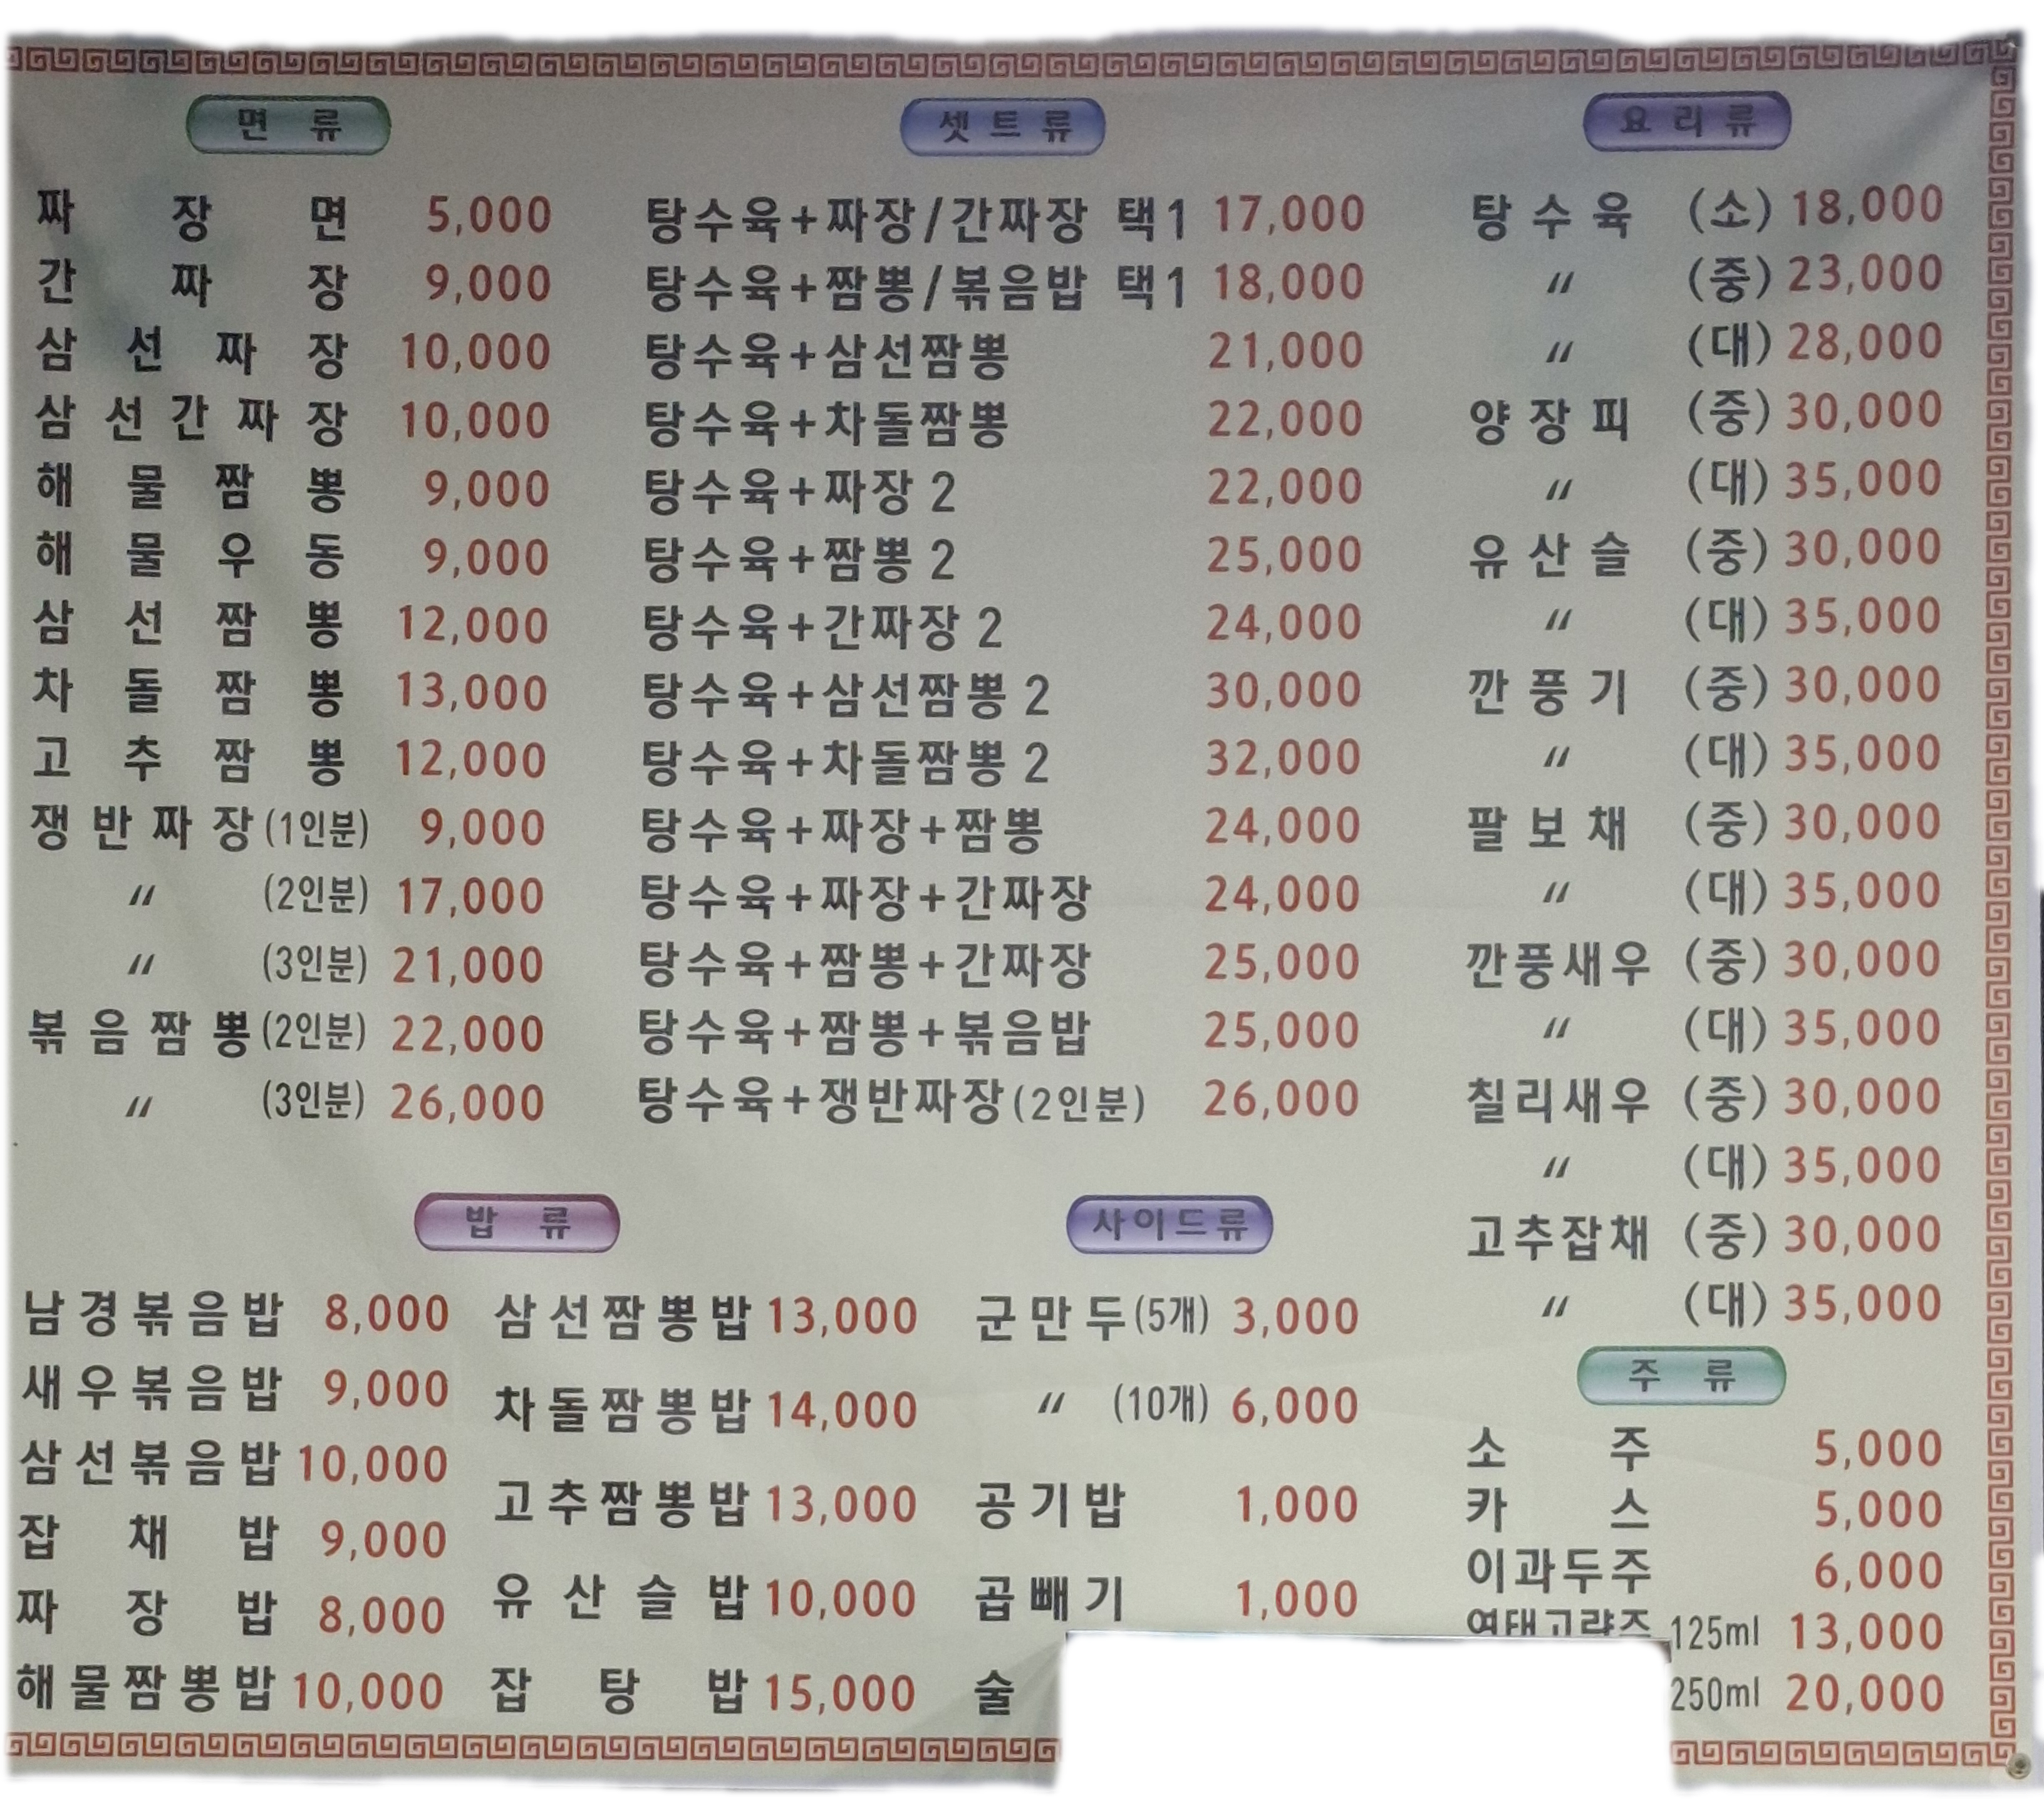 면 류
짜 장 면 5,000
간 짜 장 9,000
삼 선 짜 장 10,000
삼 선 간 짜 장 10,000
해 물 짬 뽕 9,000
해 물 우 동 9,000
삼 선 짬 뽕 12,000
차 돌 짬 뽕 13,000
고 추 짬 뽕 12,000
쟁 반 짜 장 (1인분) 9,000
〃 (2인분) 17,000
〃 (3인분) 21,000
볶 음 짬 뽕 (2인분) 22,000
〃 (3인분) 26,000
셋트류
탕수육+짜장/간짜장 택1 17,000
탕수육+짬뽕/볶음밥 택1 18,000
탕수육+삼선짬뽕 21,000
탕수육+차돌짬뽕 22,000
탕수육+짜장 2 22,000
탕수육+짬뽕 2 25,000
탕수육+간짜장 2 24,000
탕수육+삼선짬뽕 2 30,000
탕수육+차돌짬뽕 2 32,000
탕수육+짜장+짬뽕 24,000
탕수육+짜장+간짜장 24,000
탕수육+짬뽕+간짜장 25,000
탕수육+짬뽕+볶음밥 25,000
탕수육+쟁반짜장(2인분) 26,000
요리류
탕수육 (소) 18,000
〃 (중) 23,000
〃 (대) 28,000
양장피 (중) 30,000
〃 (대) 35,000
유산슬 (중) 30,000
〃 (대) 35,000
깐풍기 (중) 30,000
〃 (대) 35,000
팔보채 (중) 30,000
〃 (대) 35,000
깐풍새우 (중) 30,000
〃 (대) 35,000
칠리새우 (중) 30,000
〃 (대) 35,000
고추잡채 (중) 30,000
〃 (대) 35,000
밥 류
남경볶음밥 8,000
새우볶음밥 9,000
삼선볶음밥 10,000
잡 채 밥 9,000
짜 장 밥 8,000
해물짬뽕밥 10,000
삼선짬뽕밥 13,000
차돌짬뽕밥 14,000
고추짬뽕밥 13,000
유 산 슬 밥 10,000
잡 탕 밥 15,000
사이드류
군만두(5개) 3,000
〃 (10개) 6,000
공기밥 1,000
곱빼기 1,000
술
주 류
소 주 5,000
카 스 5,000
이과두주 6,000
125ml 13,000
250ml 20,000